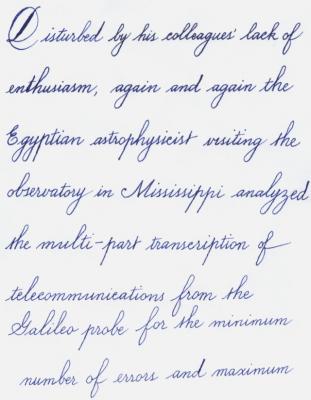 Disturbed by his colleagues' lack of
enthusiasm, again and again the
Egyptian astrophysicist visiting the
observatory in Mississippi analyzed
the multi-part transcription of
telecommunications from the
Galileo probe for the minimum
number of errors and maximum